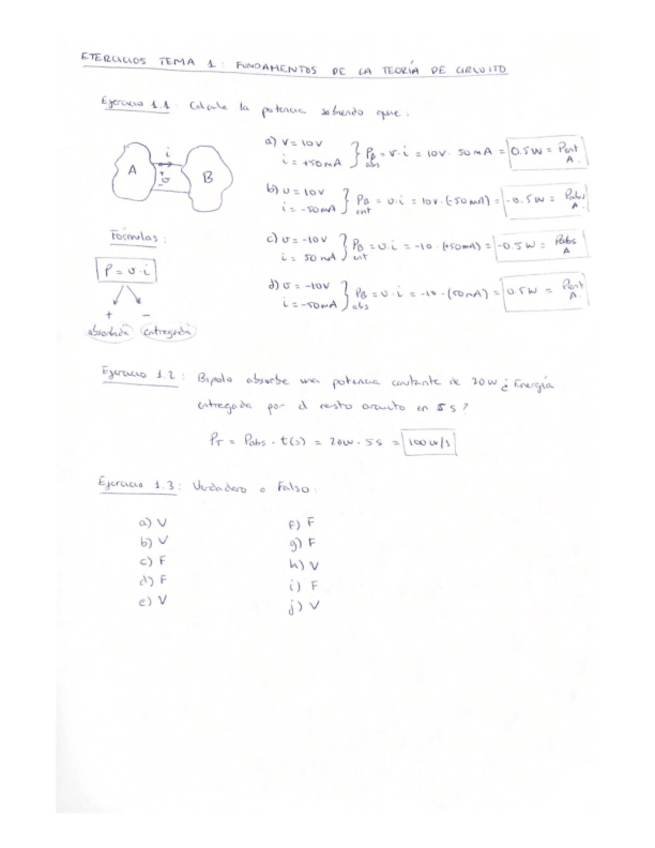 EJERCICIOS TEMA 1: FUNDAMENTOS DE LA TEORÍA DE CIRCUITO
Ejercicio 1.1: Calcule la potencia sabiendo que:
A
i
+
v
-
B
a) V = 10V
i = +50mA } P_B abs = v·i = 10V · 50mA = 0.5W = Pent A.
b) v = 10V
i = -50mA } P_B ent = v·i = 10V·(-50mA) = -0.5W = Pabs A.
c) v = -10V
i = 50mA } P_B ent = v·i = -10·(+50mA) = -0.5W = Pabs A
d) v = -10V
i = -50mA } P_B abs = v·i = -10·(50mA) = 0.5W = Pent A.
Fórmulas:
P = v·i
+ -
absorbida entregada
Ejercicio 1.2: Bipolo absorbe una potencia constante de 20W ¿Energía
entregada por el resto circuito en 5s?
P_T = Pabs · t(s) = 20W · 5s = 100W/s
Ejercicio 1.3: Verdadero o Falso:
a) V
b) V
c) F
d) F
e) V
f) F
g) F
h) V
i) F
j) V